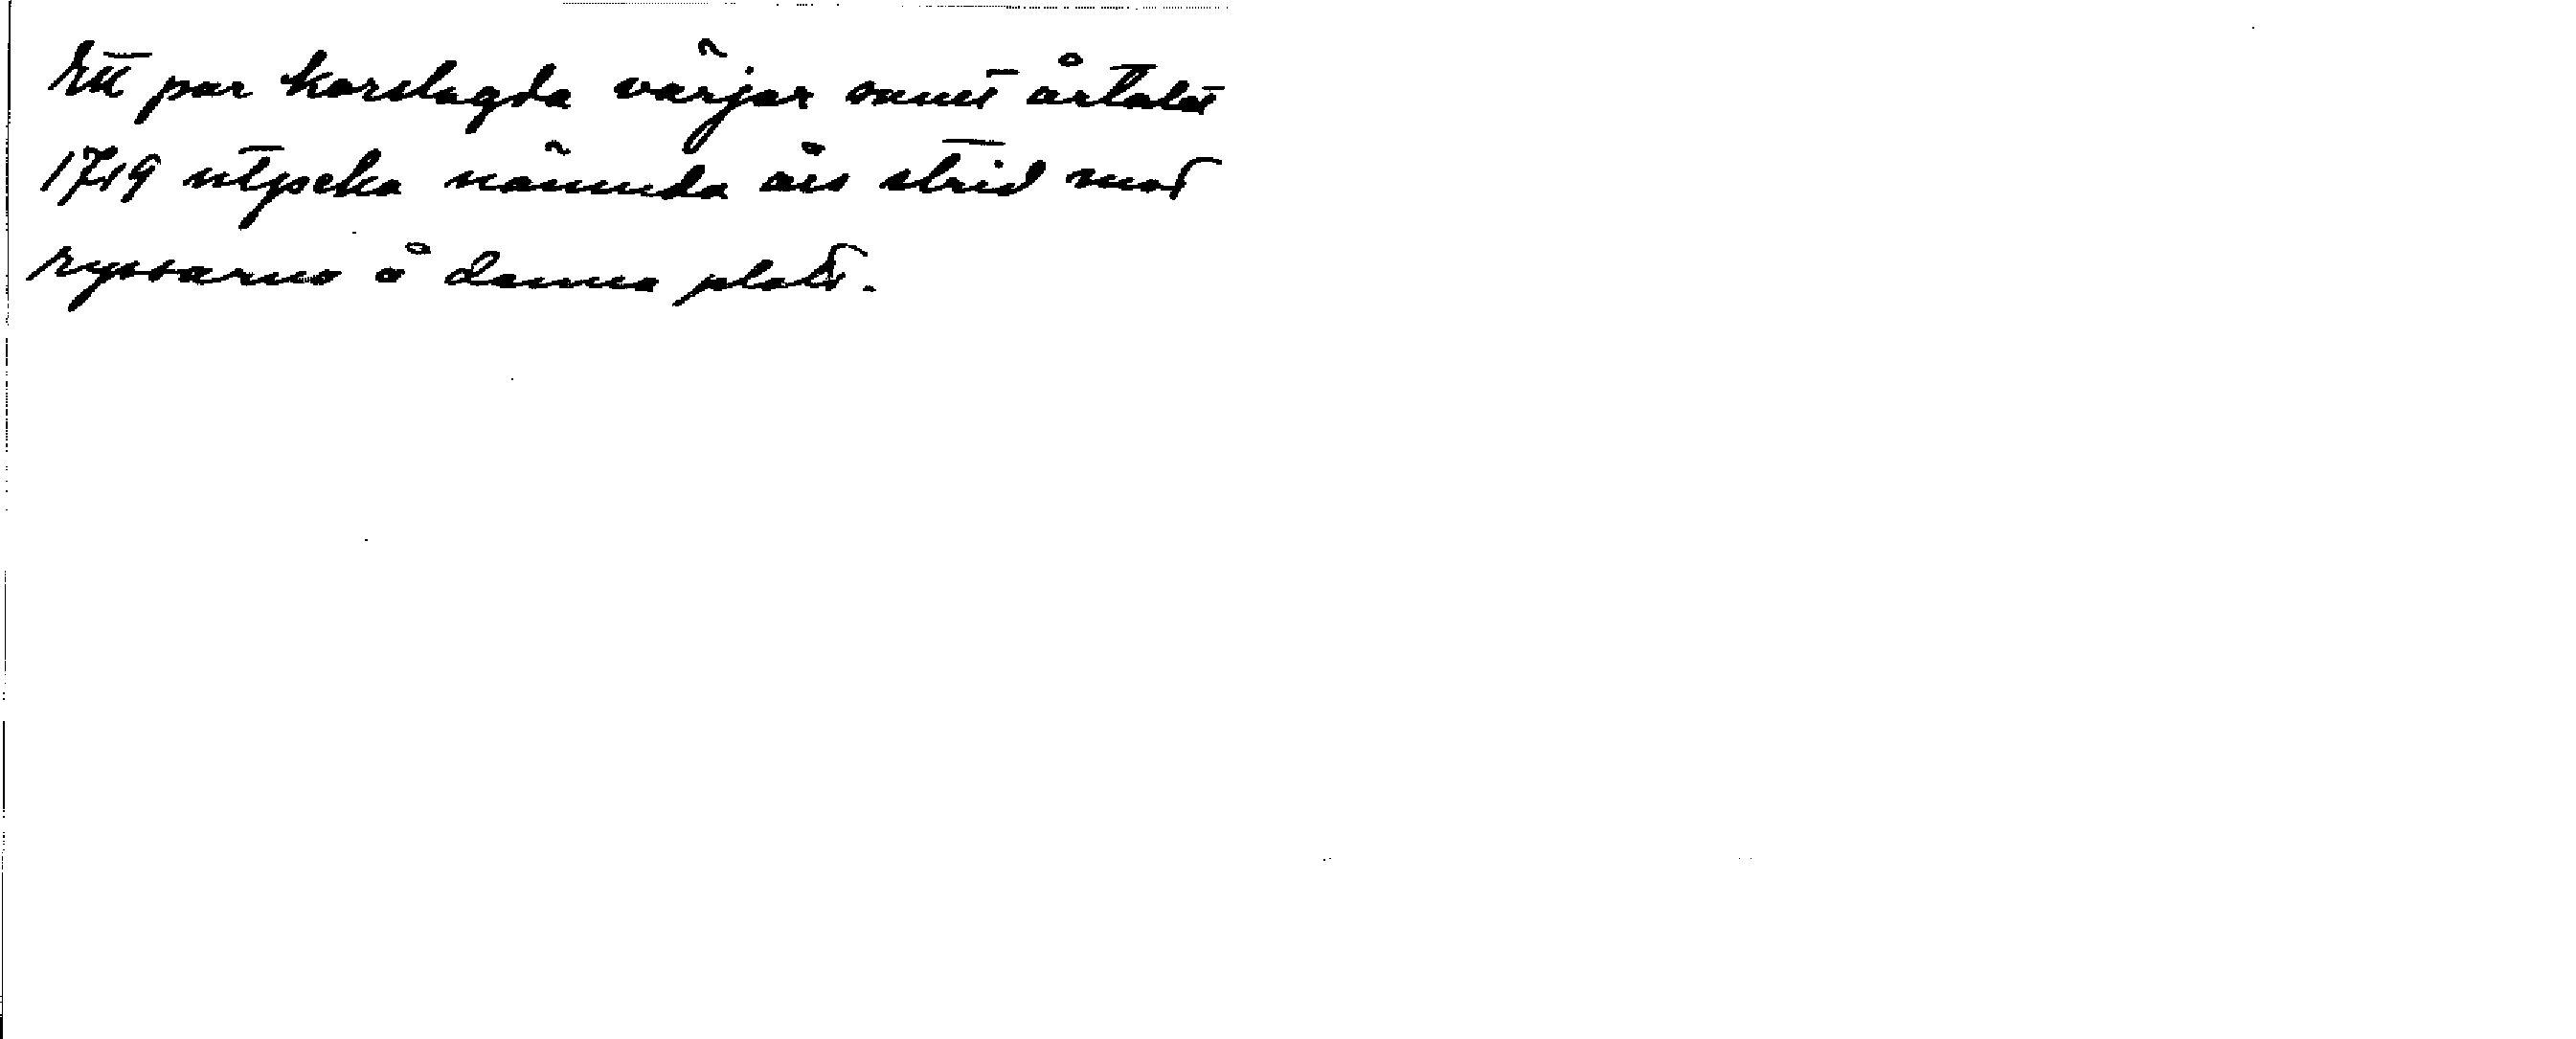 Ett par korslagda värjor samt årtalet
1719 utpeka nämnda års strid mot
ryssarna å denna plats.